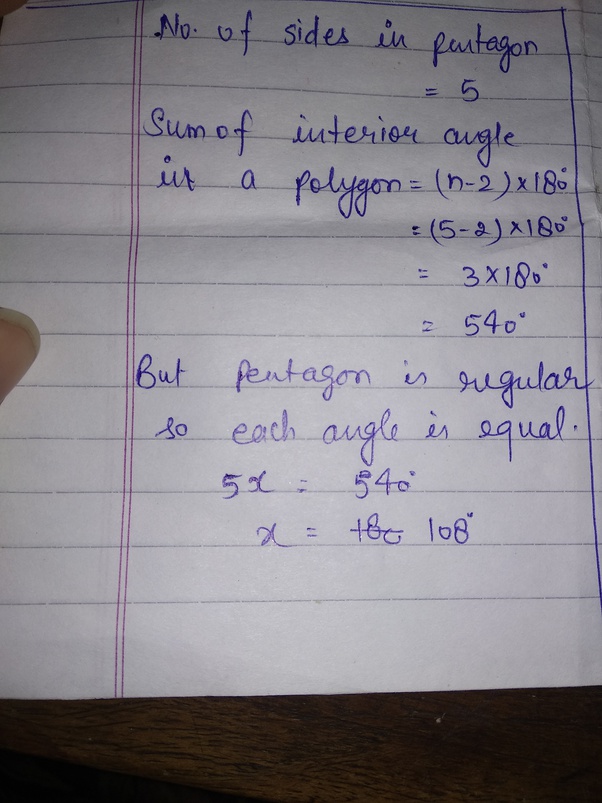 No. of sides in pentagon
= 5
Sum of interior angle
in a polygon = (n-2)×180°
= (5-2)×180°
= 3×180°
= 540°
But pentagon is regular
so each angle is equal.
5x = 540°
x = 180 108°